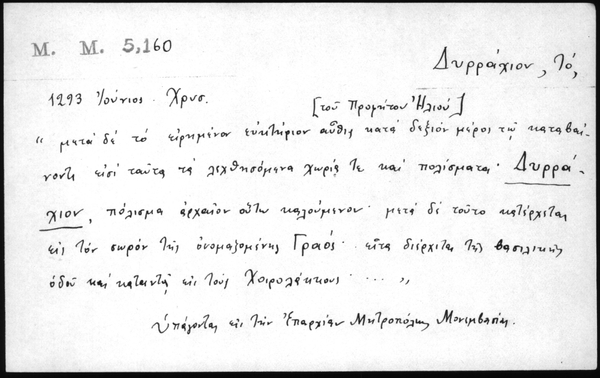 Μ. Μ. 5,160
Δυρράχιον, τό,
1293 Ἰούνιος. Χρυσ.
[τοῦ Προφήτου Ἠλιού]
"μετὰ δὲ τὸ εἰρημένον εὐκτήριον αὖθις κατὰ δεξιὸν μέρος τῷ καταβαί-
νοντι εἰσὶ ταῦτα τὰ λεχθησόμενα χωρία τε καὶ πολίσματα. Δυρρά-
χιον, πόλισμα ἀρχαῖον οὕτω καλούμενον. μετὰ δὲ τοῦτο κατέρχεται
εἰς τὸν σωρὸν τῆς ὀνομαζομένης Γραός. εἶτα διέρχεται τῆς βασιλικῆς
ὁδοῦ καὶ καταντᾷ εἰς τοὺς Χοιρολάκκους. ... "
Ὑπάγονται εἰς τὴν Ἐπαρχίαν Μητροπόλεως Μονεμβασίας.